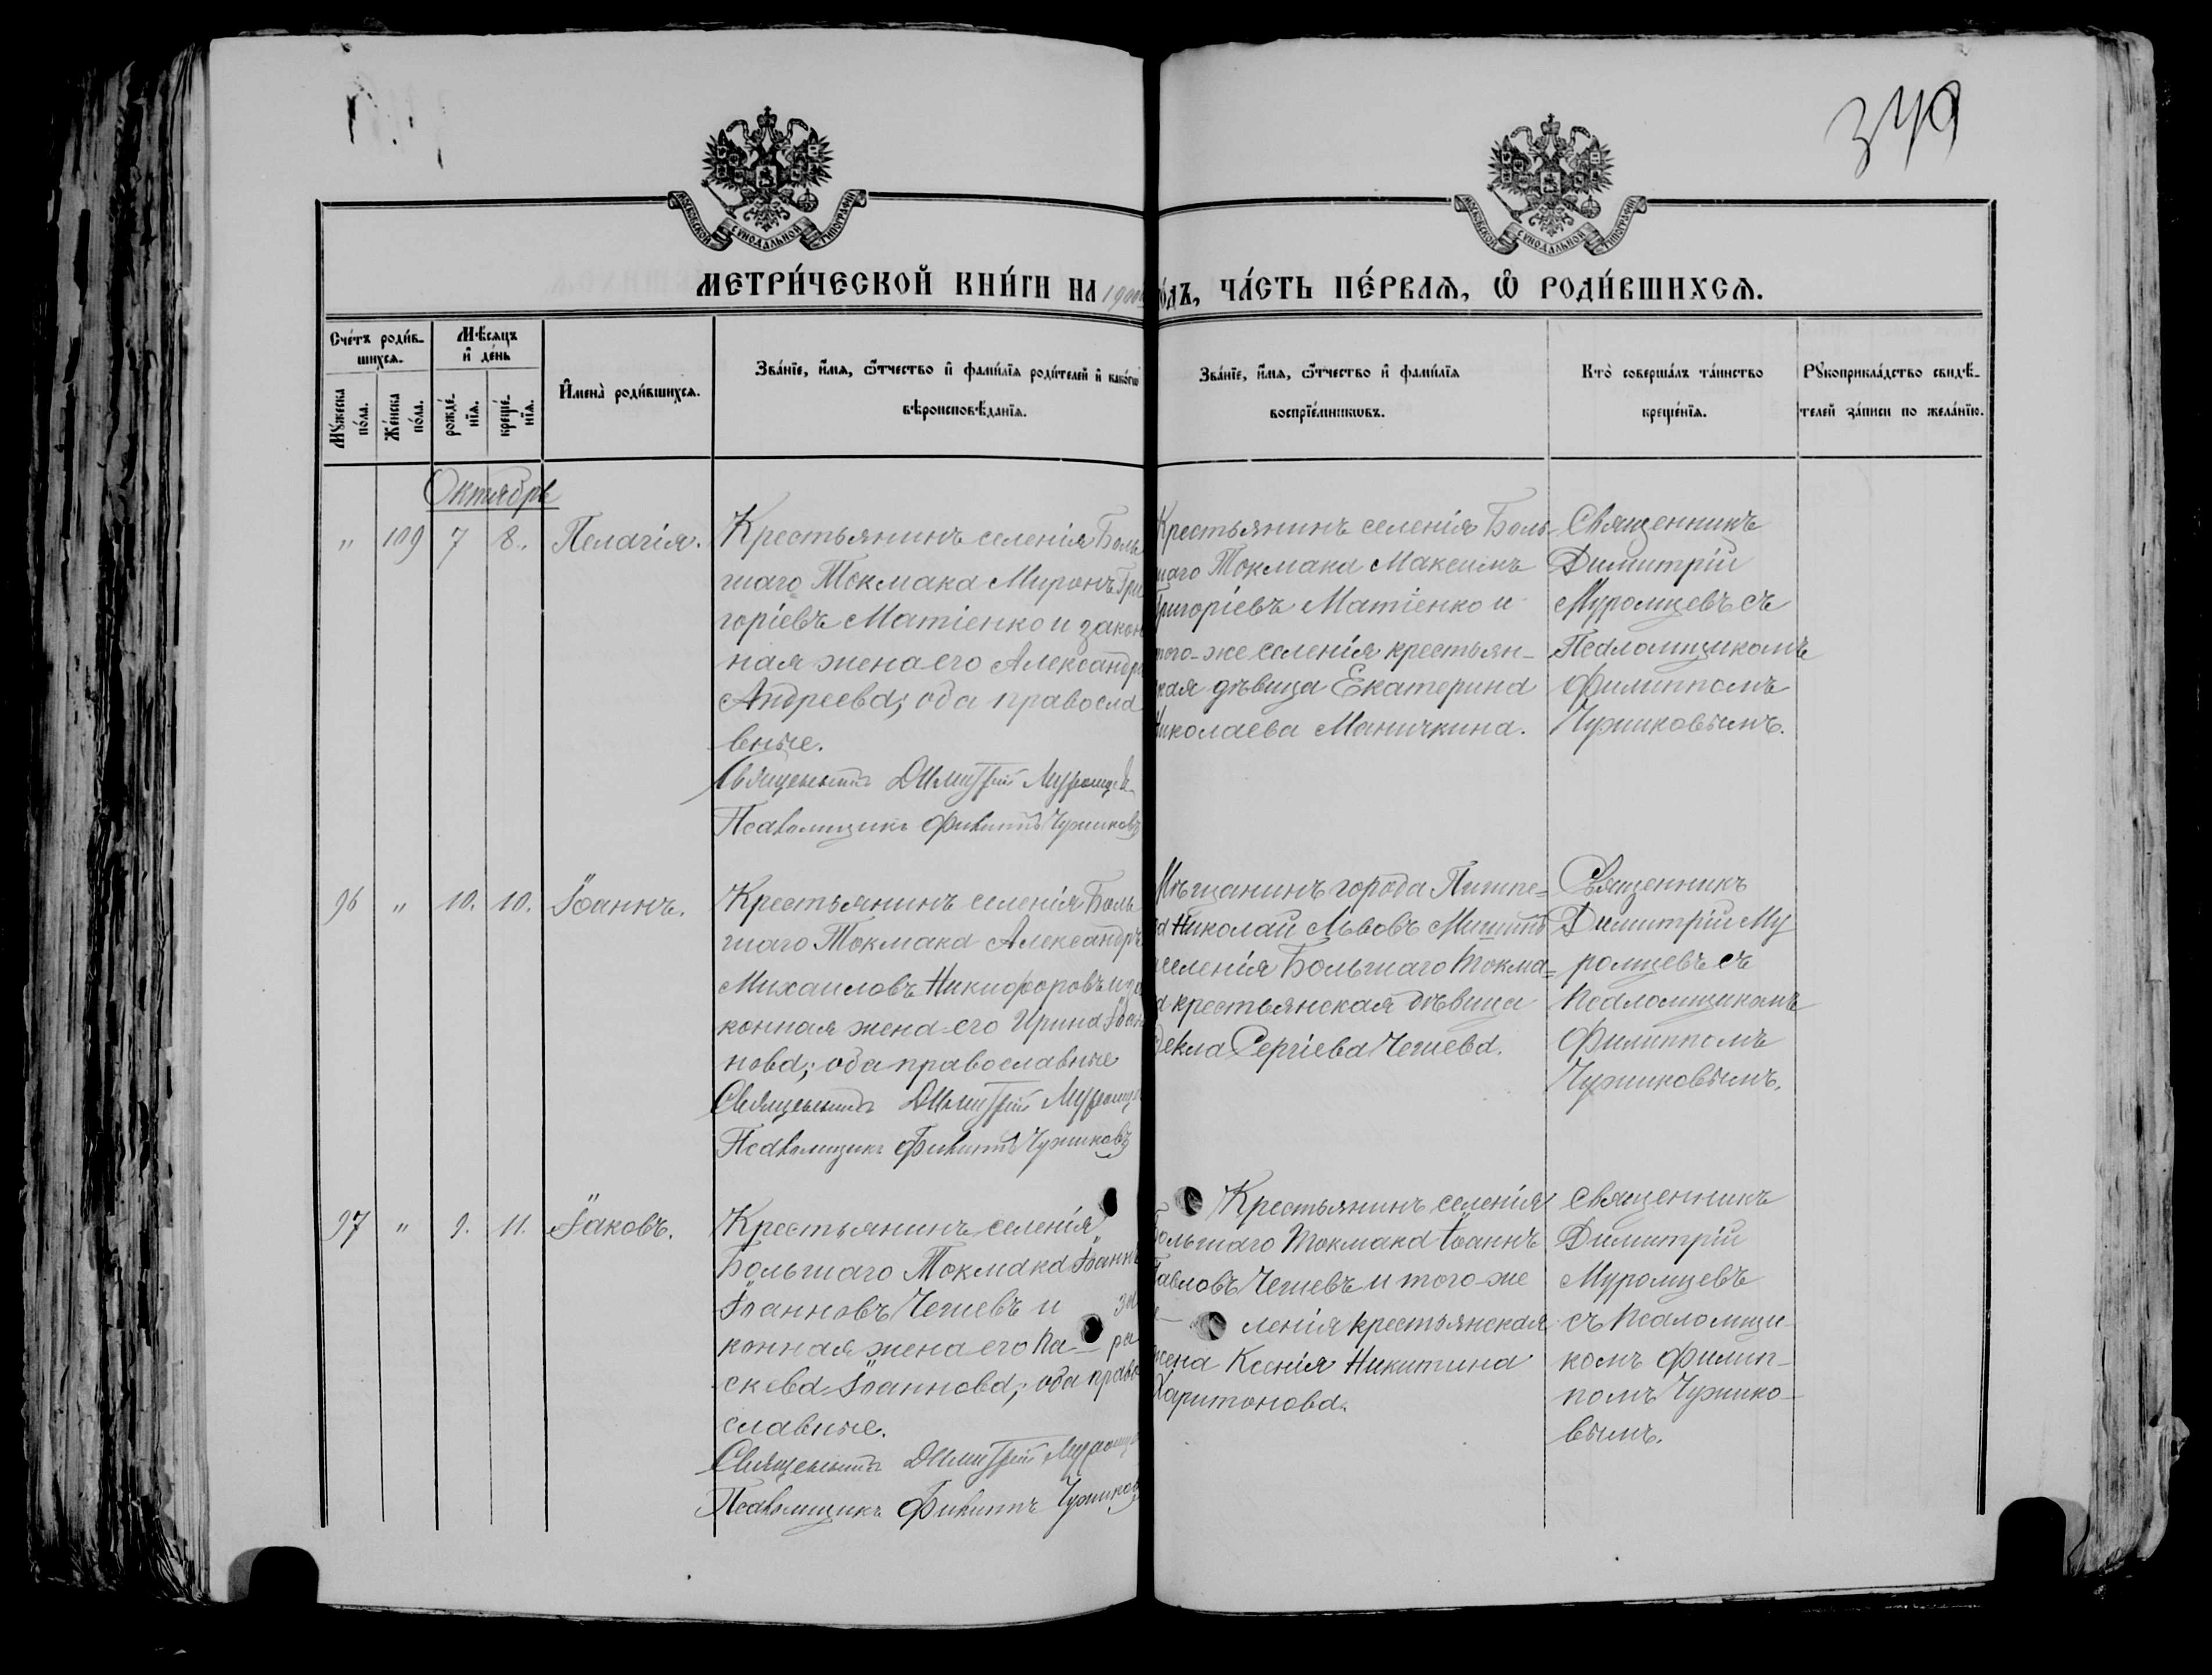 349
МОСКОВСКОЙ СѴНОДАЛЬНОЙ ТИПОГРАФІИ
МОСКОВСКОЙ СѴНОДАЛЬНОЙ ТИПОГРАФІИ
МЕТРИ́ЧЕСКОЙ КНИ́ГИ НА 1900
ГО́ДЪ, ЧА́СТЬ ПЕ́РВАѦ, Ѡ҆ РОДИ́ВШИХСѦ.
Сче́тъ роди́в-
шихсѧ.
Мꙋ́жеска
по́ла.
Же́нска
по́ла.
Мѣ́сѧцъ
и҆ де́нь
рожде́-
нїѧ.
креще́-
нїѧ.
И҆мена̀ роди́вшихсѧ.
Зва́нїе, и҆́мѧ, ѻ҆́тчество и҆ фами́лїѧ роди́телей и҆ како́гѡ
вѣроисповѣ́данїѧ.
Зва́нїе, и҆́мѧ, ѻ҆́тчество и҆ фами́лїѧ
воспрїе́мникѡвъ.
Кто̀ соверша́лъ та́инство
креще́нїѧ.
Рꙋкоприкла́дство свидѣ́-
телей за́писи по жела́нїю.
Октябрь
" 109 7 8. Пелагія.
Крестьянинъ селенія Боль
шаго Токмака Миронъ Гри
горіевъ Матіенко и закон
ная жена его Александра
Андреева; оба правосла
вные.
Священникъ Димитрій Муромцевъ
Псаломщикъ Филиппъ Чужиковъ
Крестьянинъ селенія Боль-
шаго Токмака Максимъ
Григоріевъ Матіенко и
того-же селенія крестьян-
ская дѣвица Екатерина
Николаева Маничкина.
Священникъ
Димитрій
Муромцевъ съ
Псаломщикомъ
Филиппомъ
Чужиковымъ.
96 " 10. 10. Іоаннъ.
Крестьянинъ селенія Боль
шаго Токмака Александръ
Михаиловъ Никифоровъ и за
конная жена-его Ирина Іоан
нова; оба православные
Священникъ Димитрій Муромцевъ
Псаломщикъ Филиппъ Чужиковъ
Мѣщанинъ города
Николай Львовъ
селенія Большаго Токма=
ка крестьянская дѣвица
Ѳекла Сергіева Чешева.
Священникъ
Димитрій Му
ромцевъ съ
Псаломщикомъ
Филиппомъ
Чужиковымъ.
97 " 9. 11. Іаковъ.
Крестьянинъ селенія
Большаго Токмака Іоаннъ
Іоанновъ Чешевъ и за
конная жена его Па-ра
скева Іоаннова; оба право
славные.
Священникъ Димитрій Муромцевъ
Псаломщикъ Филиппъ Чужиковъ
Крестьянинъ селенія
Большаго Токмака Іоаннъ
Павловъ Чешевъ и того-же
ленія крестьянская
жена Ксенія Никитина
Харитонова.
Священникъ
Димитрій
Муромцевъ
съ Псаломщи
комъ Филип-
помъ Чужико-
вымъ.